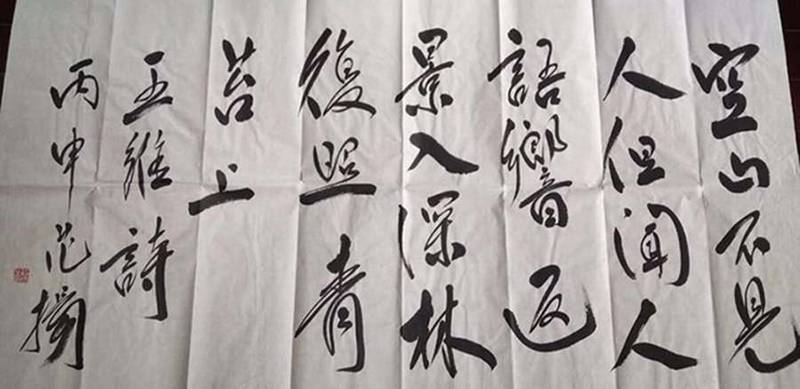 空山不見
人但聞人
語響返
景入深林
復照青
苔上
王維詩
丙申范揚